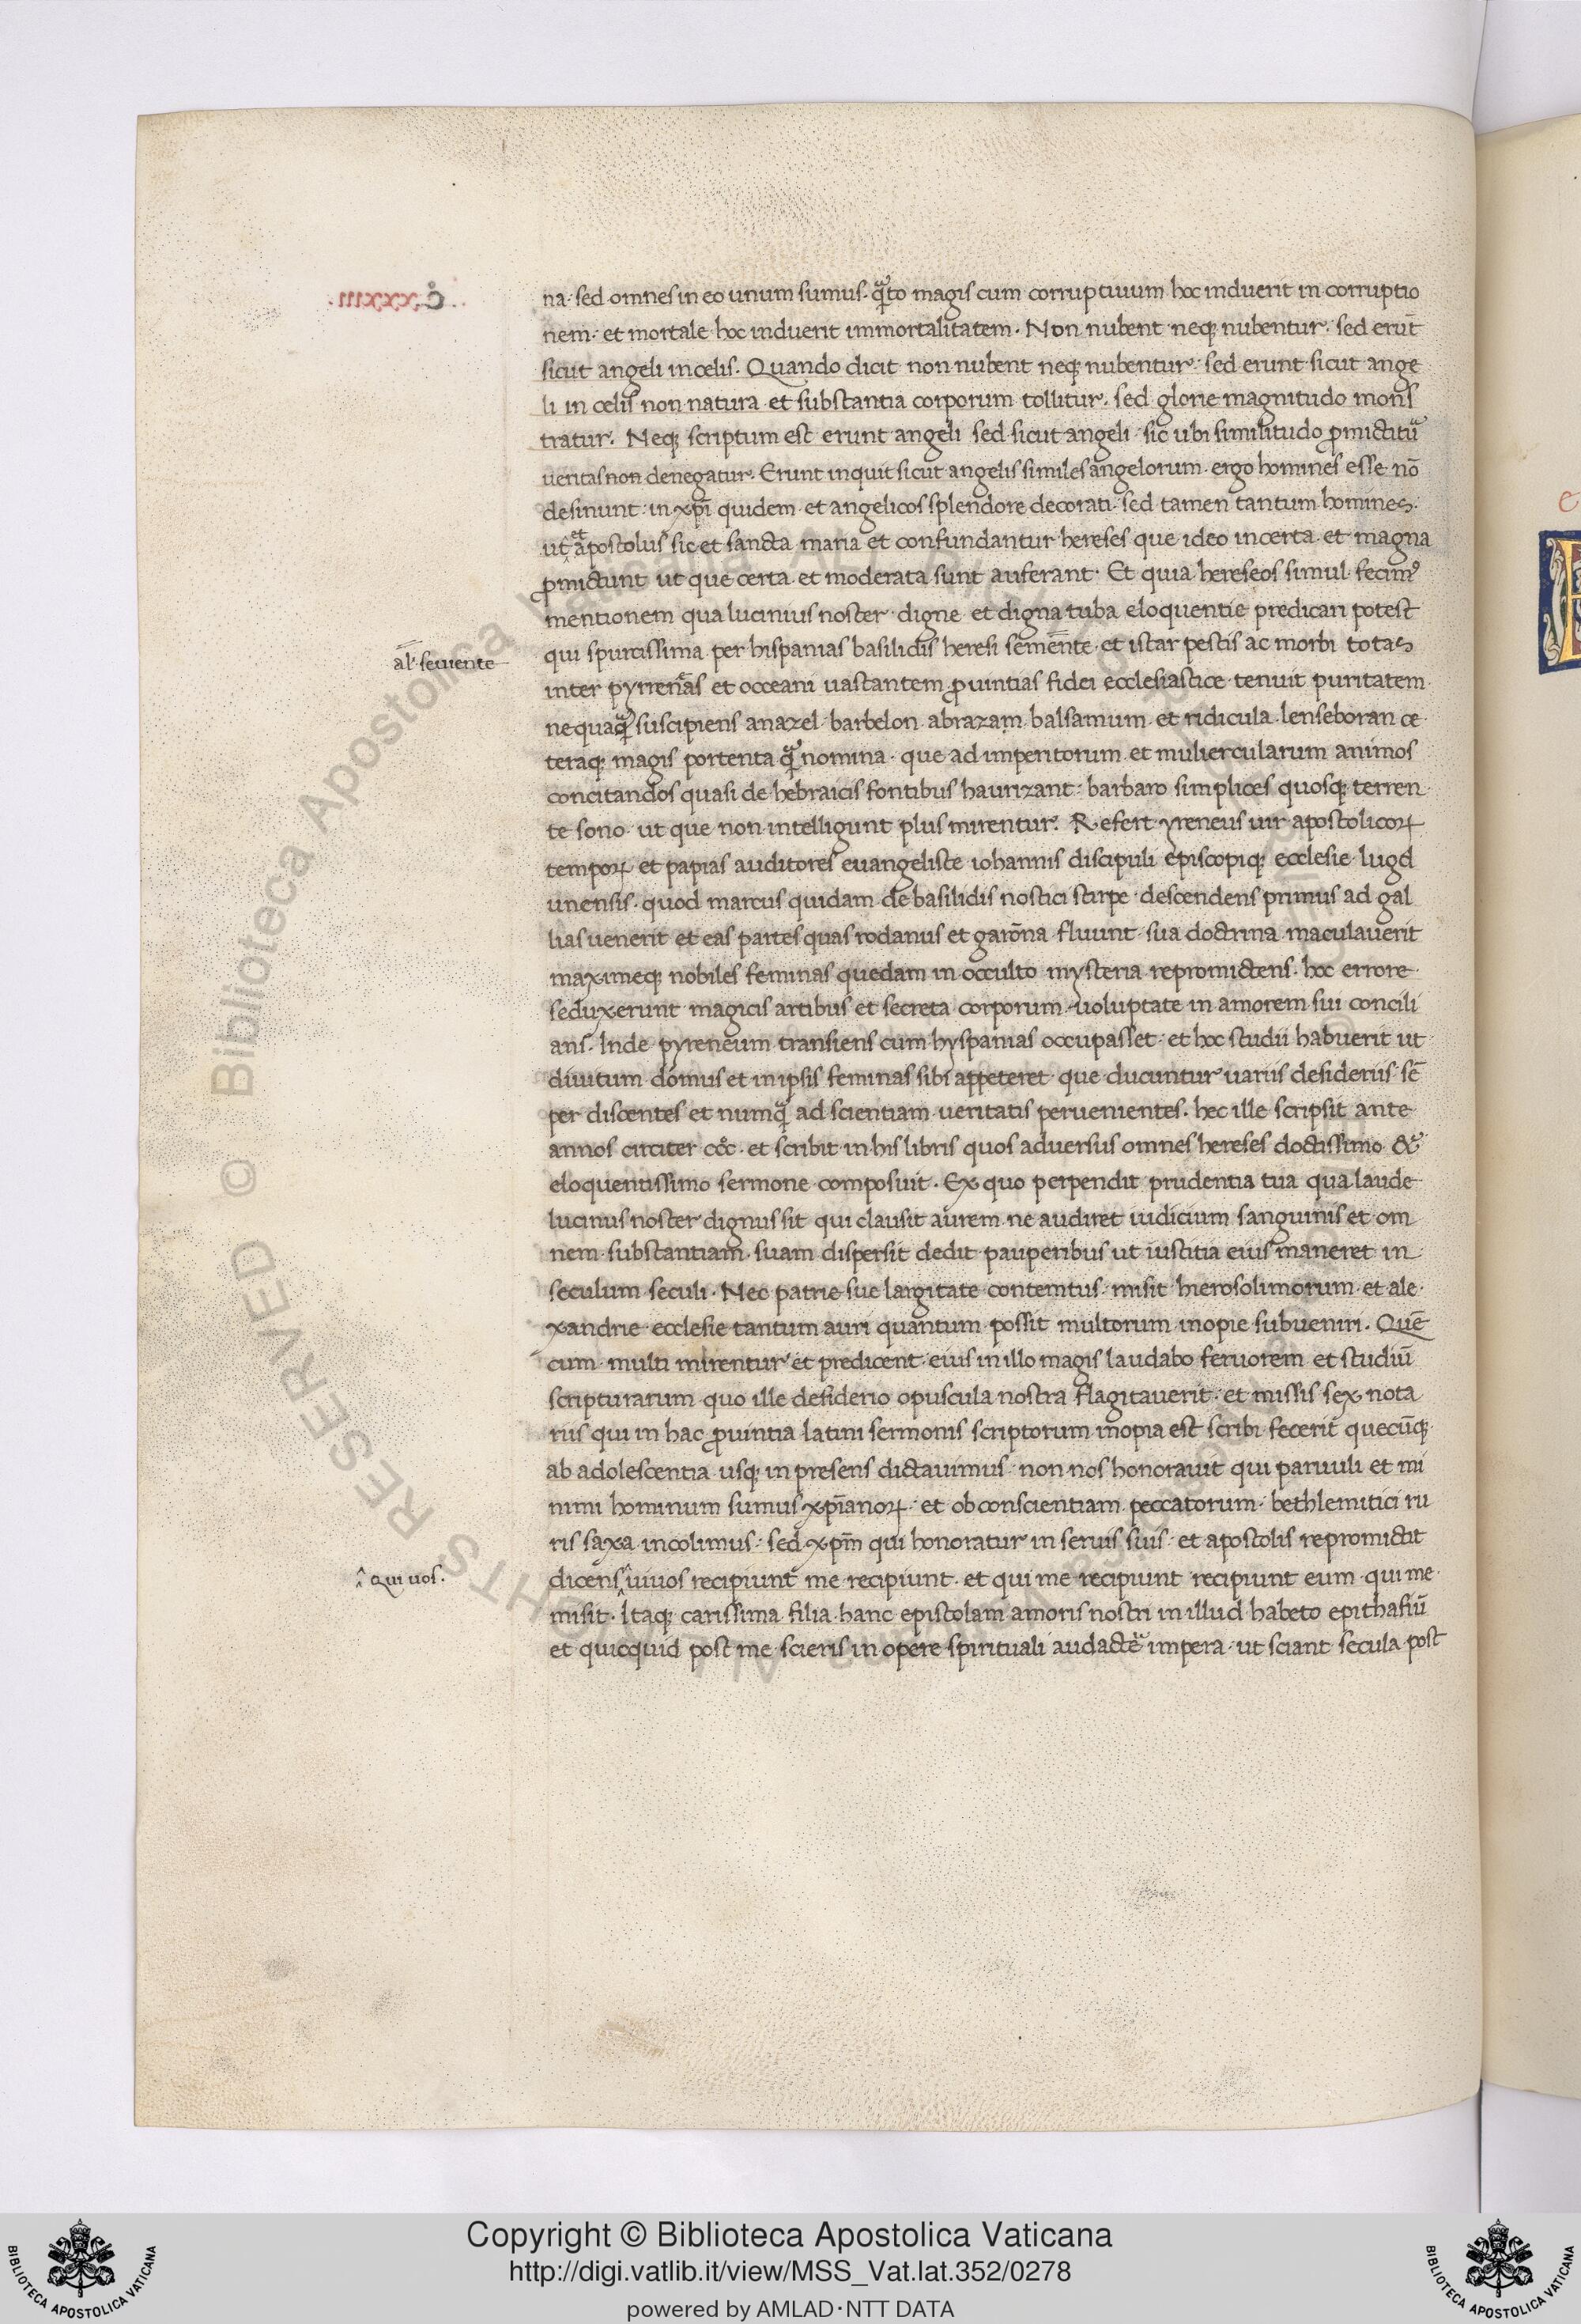 na· sed omnes in eo unum sumus· qͣto magis cum corruptiuum hoc induerit in corruptio
nem· et mortale hoc induerit immortalitatem· Non nubent neqꝫ nubentur· sed erūt
sicut angeli in celis· Quando dicit non nubent neqꝫ nubentur· sed erunt sicut ange
li in celis non natura et substantia corporum tollitur· sed glorie magnitudo mons
tratur· Neqꝫ scriptum est erunt angeli sed sicut angeli· sic ubi similitudo ꝓmictitᷣ
ueritas non denegatur· Erunt inquit sicut angelis similes angelorum· ergo homines esse nō
desinunt· in xp̄i quidem et angelicos splendore decorati· sed tamen tantum homines·
ut et apostolus sic et sancta maria et confundantur hereses que ideo incerta et magna
ꝓmictunt ut que certa et moderata sunt auferant· Et quia hereseos simul fecimꝰ
mentionem qua lucinius noster digne et digna tuba eloquentie predicari potest
al' seuiente
qui spurcissima per hispanias basilidis heresi semēnte et istar pestis ac morbi totas
inter pyrrenēas et occeani uastantem ꝓuintias fidei ecclesiastice tenuit puritatem
nequaqͣꝫ suscipiens anazel· barbelon abrazam balsamum et ridicula lenseboran ce
teraqꝫ magis portenta qͣꝫ nomina· que ad imperitorum et muliercularum animos
concitandos quasi de hebraicis fontibus haurizant· barbaro simplices quosqꝫ terren
te sono· ut que non intelligunt plus mirentur· Refert yreneus uir apostolicoꝝ
tempoꝝ et papias auditores euangeliste iohannis discipuli episcopiqꝫ ecclesie lugd
unensis· quod marcus quidam de basilidis nostici stirpe descendens primus ad gal
lias uenerit et eas partes quas rodanus et garōna fluunt sua doctrina maculauerit
maximeqꝫ nobiles feminas quedam in occulto mysteria repromictens· hoc errore
seduxerunt magicis artibus et secreta corporum uoluptate in amorem sui concili
ans· Inde pyreneum transiens cum hyspanias occupasset· et hoc studii habuerit ut
diuitum domus et in ipsis feminas sibi appeteret que ducuntur uariis desideriis· sē
per discentes et numqͣꝫ ad scientiam ueritatis peruenientes· hec ille scripsit ante
annos circiter ccc· et scribit in his libris quos aduersus omnes hereses doctissimo &
eloquentissimo sermone composuit· Ex quo perpendit prudentia tua qua laude
lucinus noster dignus sit qui clausit aurem ne audiret iudicium sanguinis et om
nem substantiam suam dispersit dedit pauperibus ut iustitia eius maneret in
seculum seculi· Nec patrie sue largitate contentus misit hierosolimorum et ale
xandrie ecclesie tantum auri quantum possit multorum inopie subueniri· Quē
cum multi mirentur et predicent eius in illo magis laudabo feruorem et studiū
scripturarum quo ille desiderio opuscula nostra flagitauerit· et missis sex nota
riis qui in hac ꝓuintia latini sermonis scriptorum inopia est scribi fecerit quecūqꝫ
ab adolescentia usqꝫ in presens dictauimus· non nos honorauit qui paruuli et mi
nimi hominum sumus xp̄ianoꝝ· et ob conscientiam peccatorum bethlemitici ru
ris saxa incolimus· sed xpm̄ qui honoratur in seruis suis· et apostolis repromictit
^ Qui uos.
dicens ^ uiuos recipiunt me recipiunt· et qui me recipiunt recipiunt eum qui me
misit· Itaqꝫ carissima filia hanc epistolam amoris nostri in illud habeto epithafiū
et quicquid post me scieris in opere spirituali audactē impera· ut sciant secula post
© Biblioteca Apostolica Vaticana
Copyright © Biblioteca Apostolica Vaticana
http://digi.vatlib.it/view/MSS_Vat.lat.352/0278
powered by AMLAD·NTT DATA
BIBLIOTECA APOSTOLICA VATICANA
BIBLIOTECA APOSTOLICA VATICANA